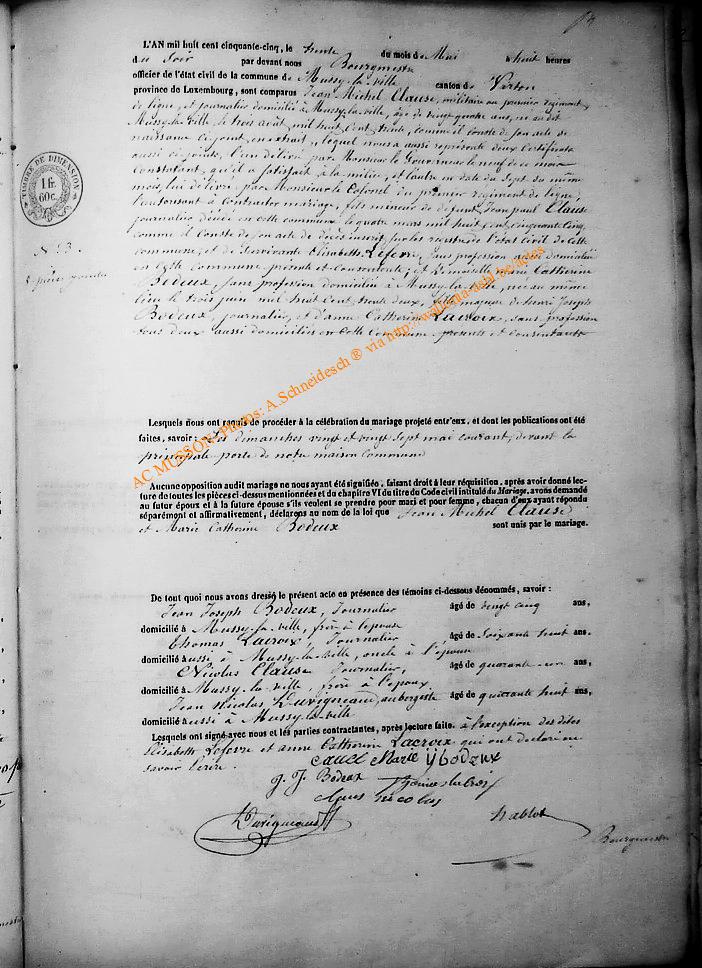 L'AN mil huit cent cinquante-cinq, le trente du mois de Mai à huit heures
du soir par devant nous Bourgmestre
officier de l'état civil de la commune de Mussy-la-ville canton de Virton
province de Luxembourg, sont comparus Jean Michel Clause, militaire au premier régiment
de ligne, et journalier domicilié à Mussy-la-ville, âgé de vingt quatre ans, né au dit
Mussy-la-ville le trois août mil huit cent trente, comme il conste de son acte de
naissance ci joint en extrait, lequel nous a aussi représenté deux certificats
aussi ci joints, l'un délivré par Monsieur le Gouverneur le neuf de ce mois
constatant qu'il a satisfait à la milice, et l'autre en date du sept du même
mois, lui délivré par Monsieur le Colonel du premier régiment de ligne,
l'autorisant à contracter mariage, fils mineur de défunt Jean paul Clause
journalier décédé en cette commune le quatre mars mil huit cent cinquante cinq,
comme il conste de son acte de décès inscrit sur les registres de l'état civil de cette
commune, et de survivante Elisabeth Lefevre, sans profession aussi domiciliée
en cette commune présente et consentante, et Demoiselle Marie Catherine
Bodeux sans profession domiciliée à Mussy-la-ville, née au même
lieu le trois juin mil huit cent trente deux, fille majeure de henri Joseph
Bodeux, journalier, et d'anne Catherine Lacroix, sans profession
tous deux aussi domiciliés en cette commune présents et consentants
TIMBRE DE DIMENSION
1 fr.
60 c.
N. 23.
pièces jointes
Lesquels nous ont requis de procéder à la célébration du mariage projeté entr'eux, et dont les publications ont été
faites, savoir: les dimanches vingt et vingt sept mai courant, devant la
principale porte de notre maison Commune
Aucune opposition audit mariage ne nous ayant été signifiée, faisant droit à leur réquisition, après avoir donné lec-
ture de toutes les pièces ci-dessus mentionnées et du chapitre VI du titre du Code civil intitulé du Mariage, avons demandé
au futur époux et à la future épouse s'ils veulent se prendre pour mari et pour femme, chacun d'eux ayant répondu
séparément et affirmativement, déclarons au nom de la loi que Jean Michel Clause
et Marie Catherine Bodeux sont unis par le mariage.
De tout quoi nous avons dressé le présent acte en présence des témoins ci-dessous dénommés, savoir:
Jean Joseph Bodeux, Journalier âgé de vingt cinq ans,
domicilié à Mussy-la-ville, frère à l'épouse
Thomas Lacroix, Journalier, âgé de soixante huit ans.
domicilié aussi à Mussy-la-ville, oncle à l'épouse
Nicolas Clause Journalier, âgé de quarante-un ans,
domicilié à Mussy-la-ville, frère à l'époux,
Jean Nicolas Duvigneaud, aubergiste âgé de quarante huit ans,
domicilié aussi à Mussy-la-ville
Lesquels ont signé avec nous et les parties contractantes, après lecture faite. à l'exception des dites
Elisabeth Lefevre et anne Catherine Lacroix qui ont déclaré ne
savoir écrire.
Marie
J. J. Bodeux
nicolas
Duvigneaud
hablot
Bourgmestre
AC MUSSON - Photos: A.Schneidesch ® via http://wallonia-asbl.be/actes